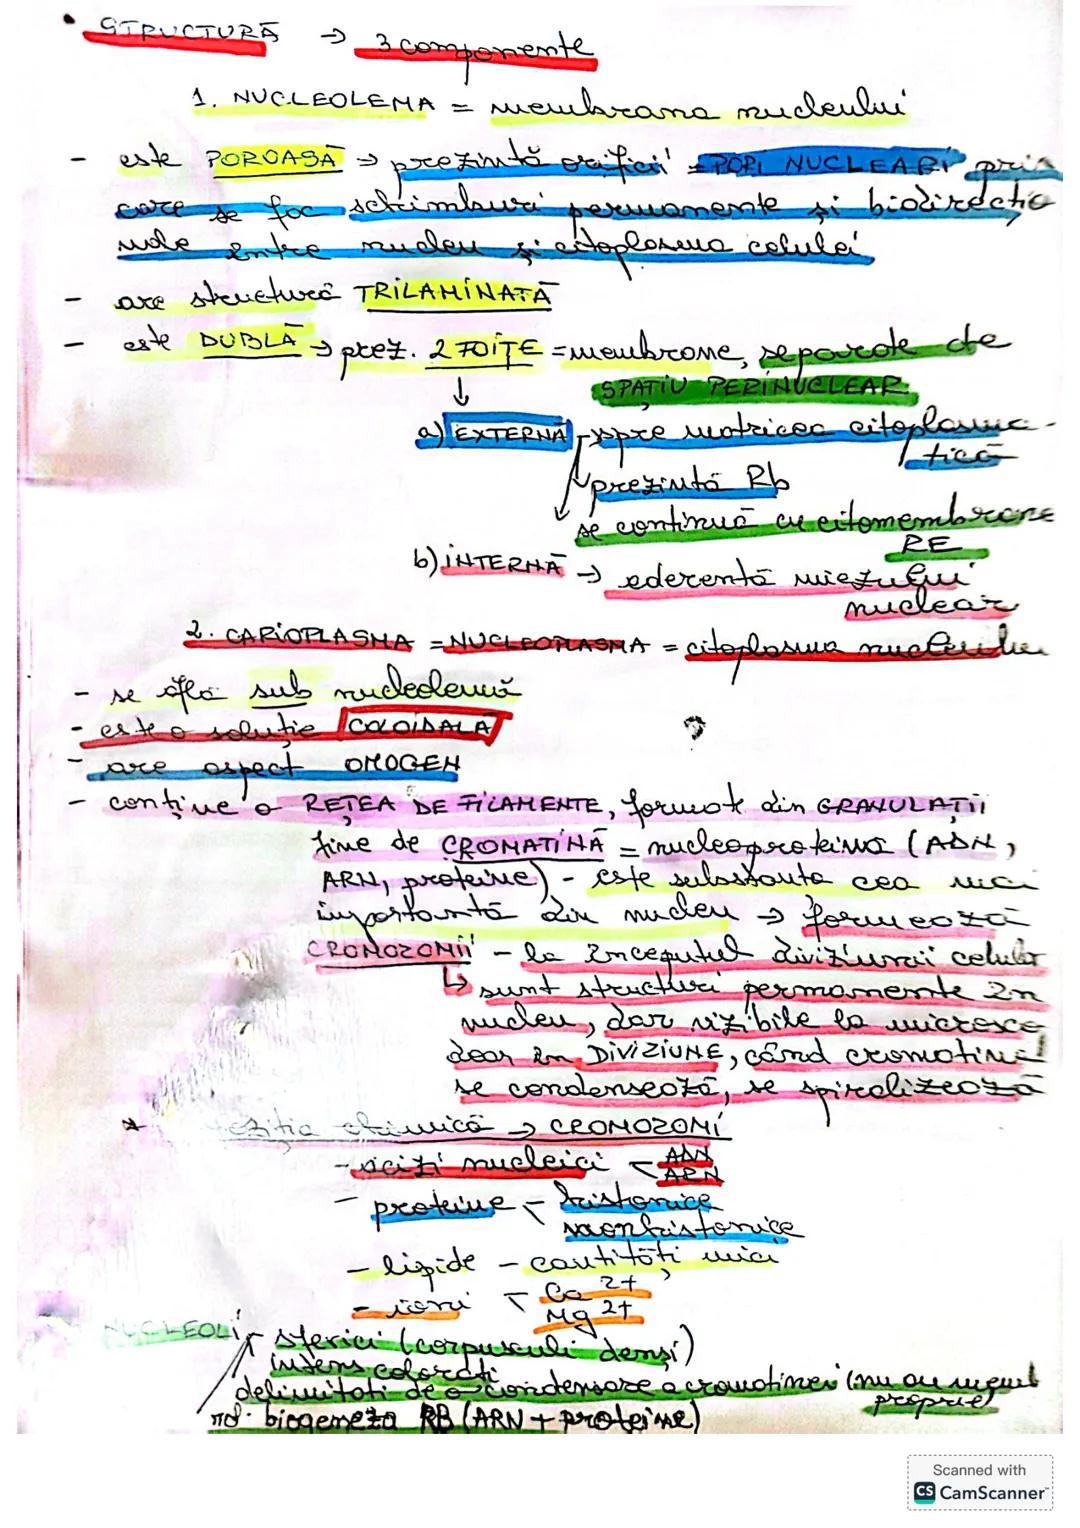 • STRUCTURĂ → 3 componente
1. NUCLEOLEMA = membrana nucleului
- este POROASĂ ⇒ prezintă orificii = PORI NUCLEARI prin
care se fac schimburi permanente și bidirecțio
nale între nucleu și citoplasma celulei
- are structură TRILAMINATĂ
- este DUBLĂ → prez. 2 FOIȚE = membrane, separate de
SPAȚIU PERINUCLEAR
a) EXTERNĂ - spre matricea citoplasma-
tică
prezintă Rb
se continuă cu citomembrane
RE
b) INTERNĂ → aderentă miezului
nuclear
2. CARIOPLASMA = NUCLEOPLASMA = citoplasma nucleului
- se află sub nucleolemă
- este o soluție COLOIDALĂ
- are aspect OMOGEN
- conține o REȚEA DE FILAMENTE, formate din GRANULAȚII
fine de CROMATINĂ = nucleoproteina (ADN,
ARN, proteine) - este substanta cea mai
importantă din nucleu → formează
CROMOZOMII - la începutul diviziunii celular
↳ sunt structuri permanente în
nucleu, dar vizibile la microsco
doar în DIVIZIUNE, când cromatina
se condensează, se spiralizează
* ziția chimică → CROMOZOMI
- acizi nucleici < ADN
ARN
- proteine - histonice
nonhistonice
- lipide - cantități mici
- ioni < Ca 2+
Mg 2+
NUCLEOLI - sferici (corpusculi denși)
intens colorați
delimitați de o condensare a cromatinei (nu au
proprie)
rol: biogeneza RB (ARN + proteine)
Scanned with
CS CamScanner